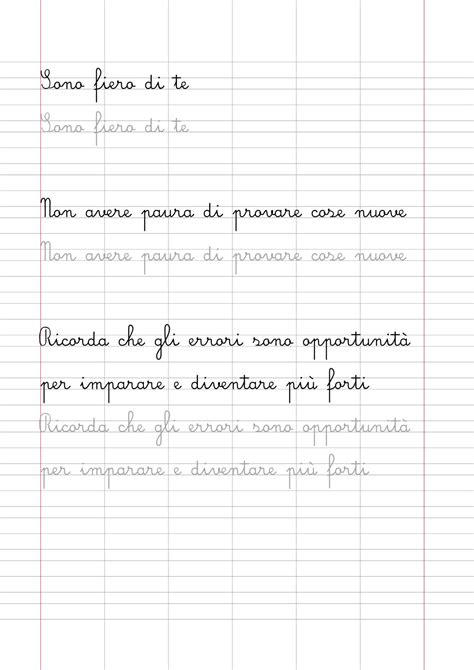 Sono fiero di te
Sono fiero di te
Non avere paura di provare cose nuove
Non avere paura di provare cose nuove
Ricorda che gli errori sono opportunità
per imparare e diventare più forti
Ricorda che gli errori sono opportunità
per imparare e diventare più forti